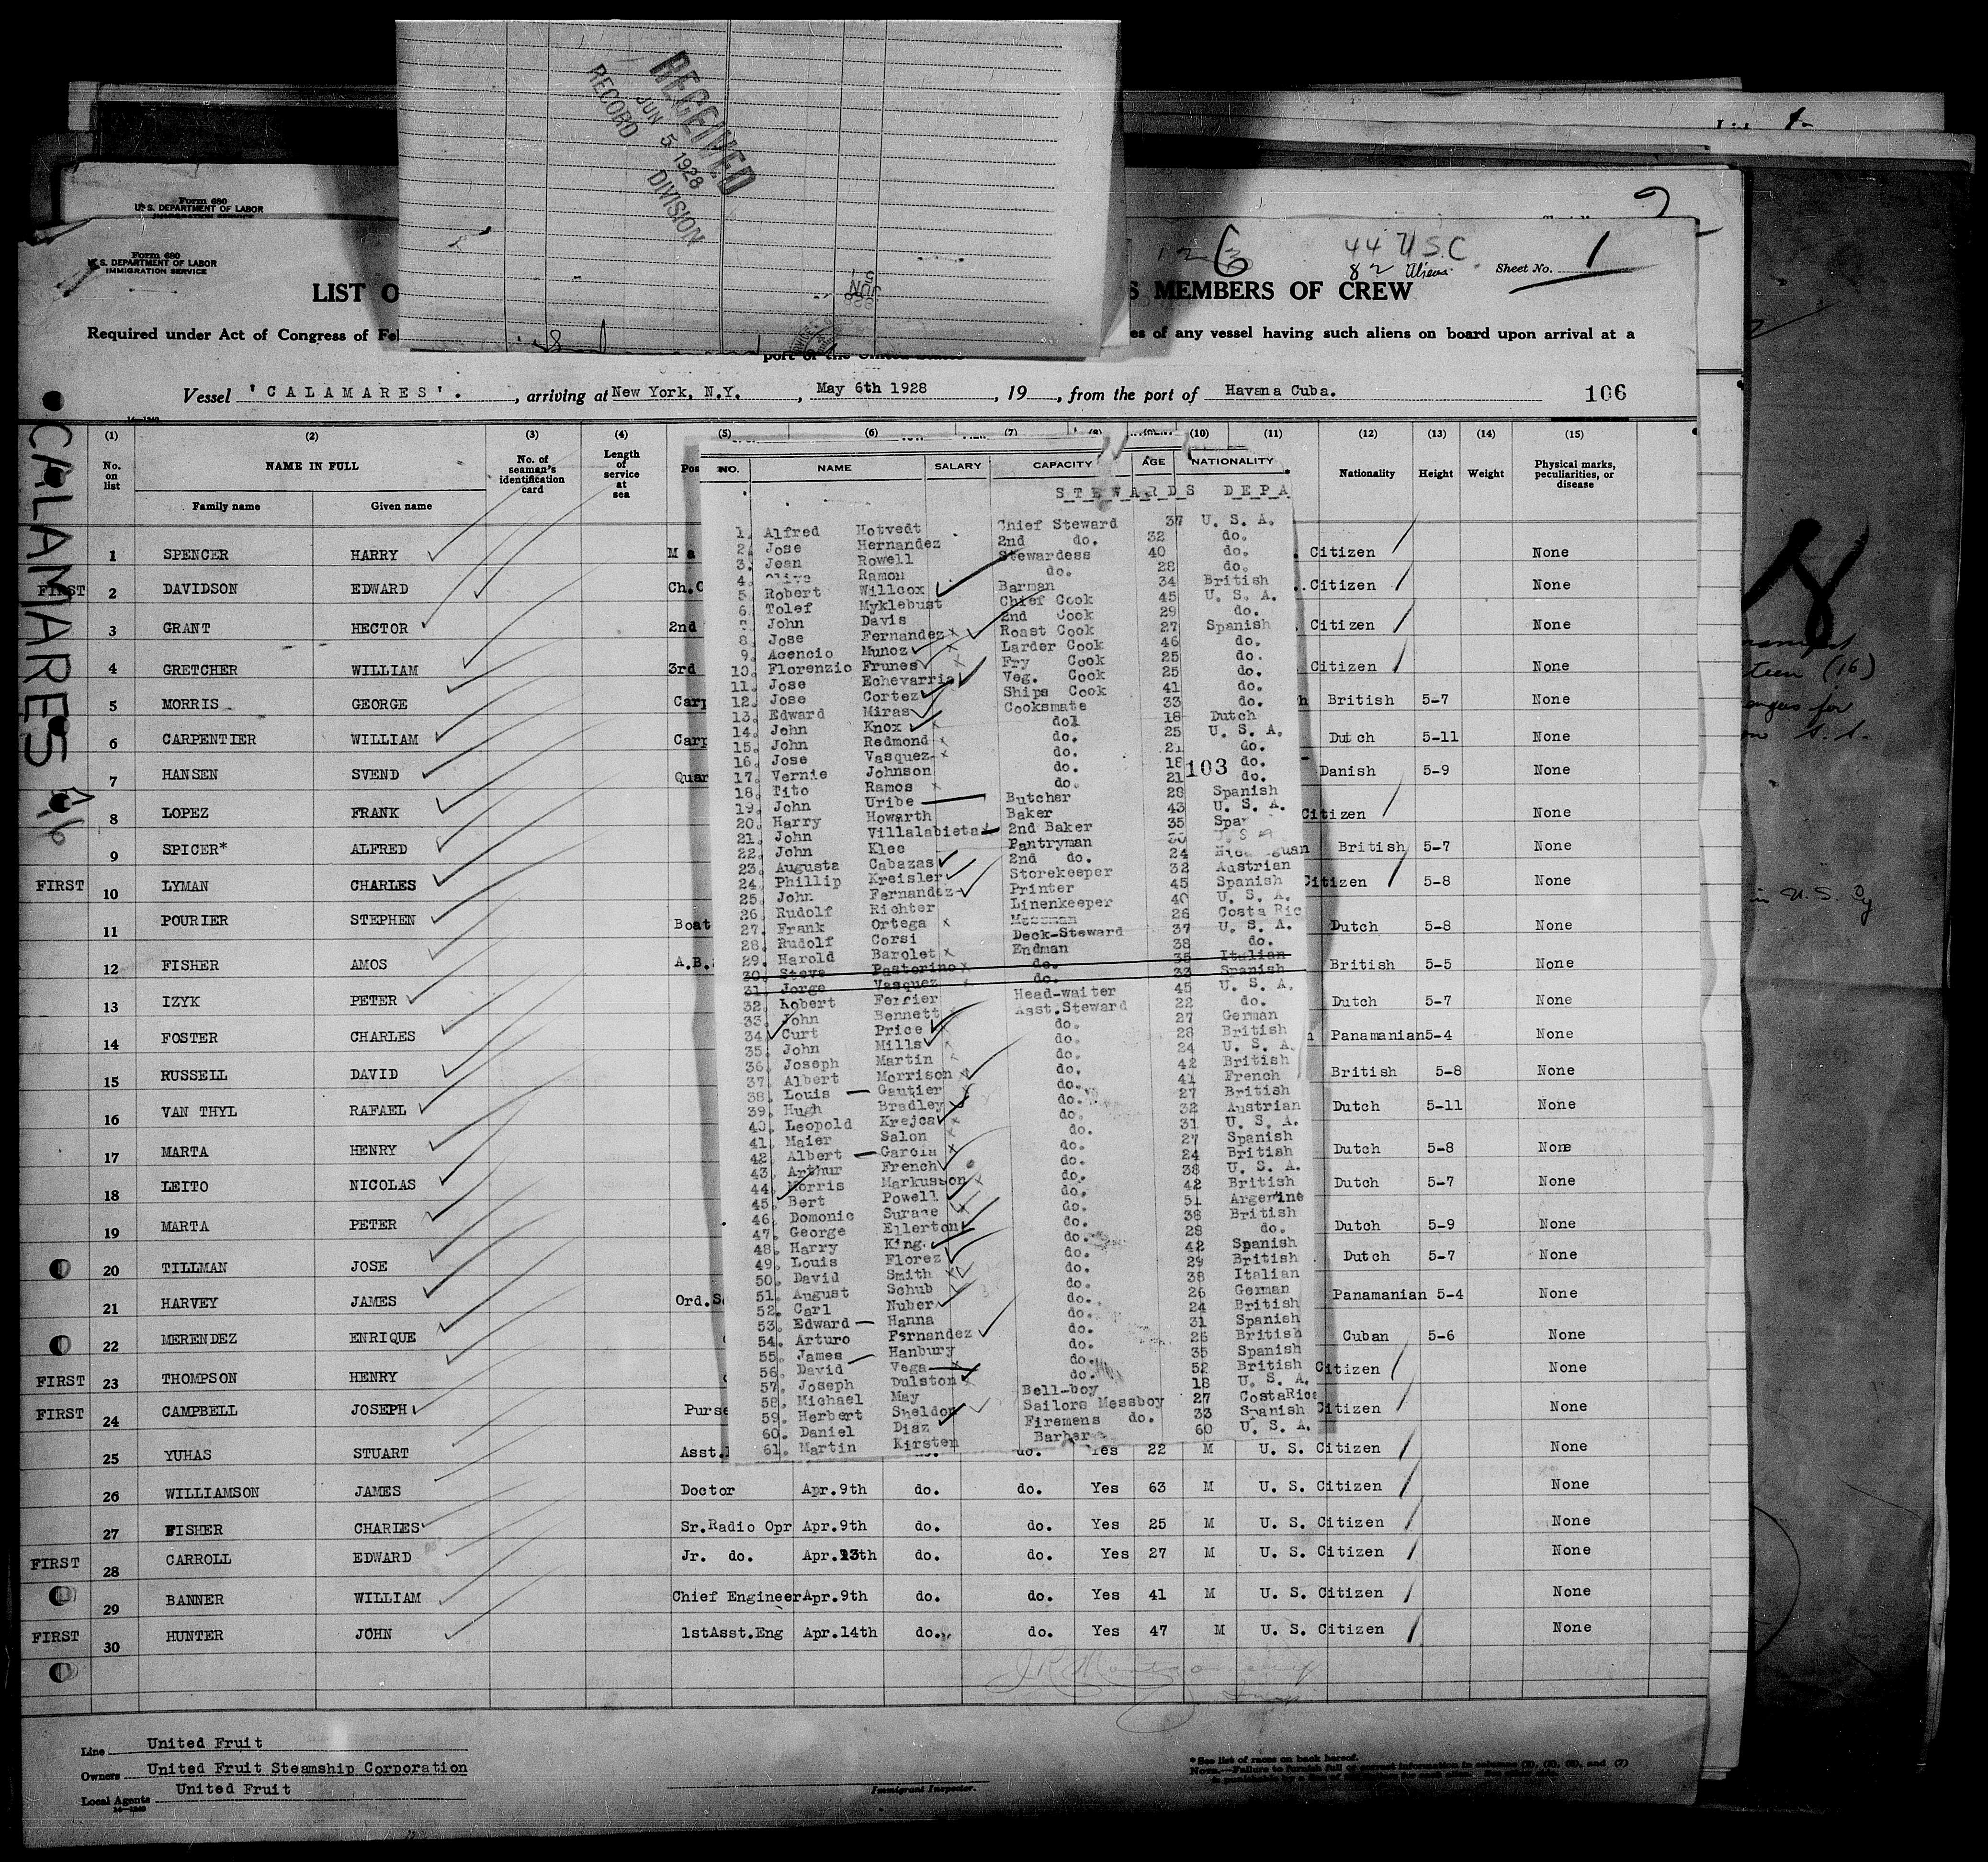 RECEIVED
JUN 5 1928
RECORD DIVISION
Form 680
U. S. DEPARTMENT OF LABOR
IMMIGRATION SERVICE
Form 680
U. S. DEPARTMENT OF LABOR
IMMIGRATION SERVICE
6
44 U.S.C
82 Aliens
Sheet No. 1
LIST O
S MEMBERS OF CREW
Required under Act of Congress of Fe
es of any vessel having such aliens on board upon arrival at a
port of the United States
Vessel 'CALAMARES'. , arriving at New York, N.Y. , May 6th 1928 , 19 , from the port of Havana Cuba. 106
CALAMARES
(1) (2) (3) (4) (5) (6) (7) (8) (10) (11) (12) (13) (14) (15)
No. on list NAME IN FULL No. of seaman's identification card Length of service at sea Pos Nationality Height Weight Physical marks, peculiarities, or disease
Family name Given name
1 SPENCER HARRY Ma Citizen None
FIRST 2 DAVIDSON EDWARD Ch.O Citizen None
3 GRANT HECTOR 2nd Citizen None
4 GRETCHER WILLIAM 3rd Citizen None
5 MORRIS GEORGE Carp British 5-7 None
6 CARPENTIER WILLIAM Carp Dutch 5-11 None
7 HANSEN SVEND Quar Danish 5-9 None
8 LOPEZ FRANK Citizen None
9 SPICER* ALFRED British 5-7 None
FIRST 10 LYMAN CHARLES Citizen 5-8 None
11 POURIER STEPHEN Boat Dutch 5-8 None
12 FISHER AMOS A.B. British 5-5 None
13 IZYK PETER Dutch 5-7 None
14 FOSTER CHARLES Panamanian 5-4 None
15 RUSSELL DAVID British 5-8 None
16 VAN THYL RAFAEL Dutch 5-11 None
17 MARTA HENRY Dutch 5-8 None
18 LEITO NICOLAS Dutch 5-7 None
19 MARTA PETER Dutch 5-9 None
20 TILLMAN JOSE Dutch 5-7 None
21 HARVEY JAMES Ord.S Panamanian 5-4 None
22 MERENDEZ ENRIQUE Cuban 5-6 None
FIRST 23 THOMPSON HENRY Citizen None
FIRST 24 CAMPBELL JOSEPH Purse Citizen None
25 YUHAS STUART Asst. do. Yes 22 M U. S. Citizen None
26 WILLIAMSON JAMES Doctor Apr.9th do. do. Yes 63 M U. S. Citizen None
27 FISHER CHARLES Sr.Radio Opr Apr.9th do. do. Yes 25 M U. S. Citizen None
FIRST 28 CARROLL EDWARD Jr. do. Apr.13th do. do. Yes 27 M U. S. Citizen None
29 BANNER WILLIAM Chief Engineer Apr.9th do. do. Yes 41 M U. S. Citizen None
FIRST 30 HUNTER JOHN 1stAsst.Eng Apr.14th do. do. Yes 47 M U. S. Citizen None
NO. NAME SALARY CAPACITY AGE NATIONALITY
STEWARDS DEPA
1. Alfred Hotvedt Chief Steward 37 U. S. A.
2. Jose Hernandez 2nd do. 32 do.
3. Jean Rowell Stewardess 40 do.
4. Olive Ramon do. 28 do.
5. Robert Willcox Barman 34 British
6. Tolef Myklebust Chief Cook 45 U. S. A.
7. John Davis 2nd Cook 29 do.
8. Jose Fernandez Roast Cook 27 Spanish
9. Acencio Munoz Larder Cook 46 do.
10. Florenzio Frunes Fry Cook 25 do.
11. Jose Echevarria Veg. Cook 25 do.
12. Jose Cortez Ships Cook 41 do.
13. Edward Miras Cooksmate 33 do.
14. John Knox do1 18 Dutch
15. John Redmond do. 25 U. S. A.
16. Jose Vasquez do. 21 do.
17. Vernie Johnson do. 18 do.
103
18. Tito Ramos do. 21 do.
19. John Uribe Butcher 28 Spanish
20. Harry Howarth Baker 43 U. S. A.
21. John Villalabieta 2nd Baker 35 Spa
22. John Klee Pantryman U S A
23. Augusta Cabazas 2nd do. 24
24. Phillip Kreisler Storekeeper 32 Austrian
25. John Fernandez Printer 45 Spanish
26. Rudolf Richter Linenkeeper 40 U. S. A.
27. Frank Ortega Messman 26 Costa Ric
28. Rudolf Corsi Deck-Steward 37 U. S. A.
29. Harold Barolet Endman 38 do.
30. Steve Pastorino do. 35 Italian
31. Jorge Vasquez do. 33 Spanish
32. Robert Ferrier Head-waiter 45 U. S. A.
33. John Bennett Asst.Steward 22 do.
34. Curt Price do. 27 German
35. John Mills do. 28 British
36. Joseph Martin do. 24 U. S. A.
37. Albert Morrison do. 42 British
38. Louis Gautier do. 41 French
39. Hugh Bradley do. 27 British
40. Leopold Krejca do. 32 Austrian
41. Maier Salon do. 31 U. S. A.
42. Albert Garcia do. 27 Spanish
43. Arthur French do. 24 British
44. Morris Markusson do. 38 U. S. A.
45. Bert Powell do. 42 British
46. Domonic Surace do. 51 Argentine
47. George Ellerton do. 38 British
48. Harry King. do. 28 do.
49. Louis Florez do. 42 Spanish
50. David Smith do. 29 British
51. August Schub do. 38 Italian
52. Carl Nuber do. 26 German
53. Edward Hanna do. 24 British
54. Arturo Fernandez do. 31 Spanish
55. James Hanbury do. 26 British
56. David Vega do. 35 Spanish
57. Joseph Dulston do. 52 British
58. Michael May Bell-boy 18 U. S. A.
59. Herbert Sheldon Sailors Messboy 27 CostaRica
60. Daniel Diaz Firemens do. 33 Spanish
61. Martin Kirsten Barber 60 U. S. A.
Line United Fruit
Owners United Fruit Steamship Corporation
Local Agents United Fruit
Immigrant Inspector.
*See list of races on back hereof.
teen (16)
in U.S. by